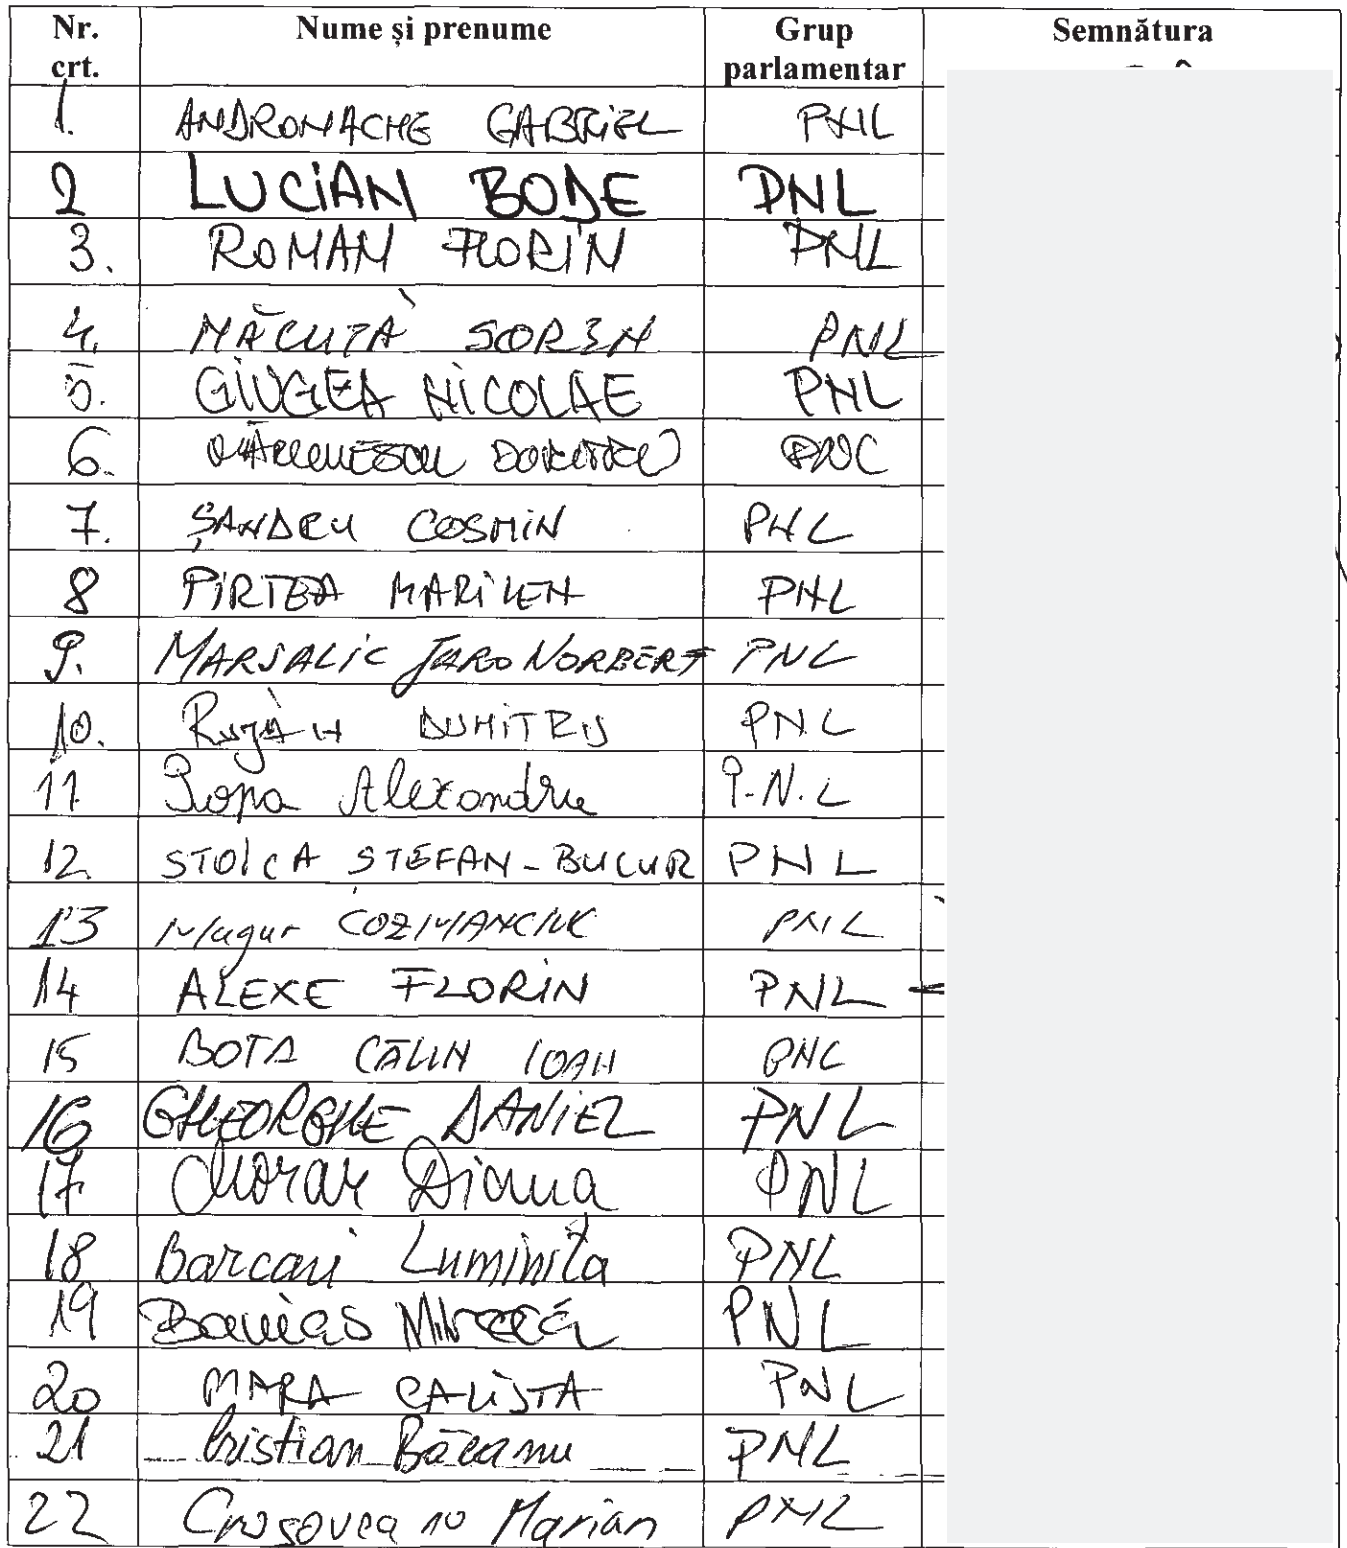 Nr. crt. Nume și prenume Grup parlamentar Semnătura
1. ANDRONACHE GABRIEL PNL
2 LUCIAN BODE PNL
3. ROMAN FLORIN PNL
4. MĂCUȚĂ SORIN PNL
5. GIUGEA NICOLAE PNL
6. PNL
7. ȘANDRU COSMIN PNL
8 PIRTEA MARILEN PNL
9. MARSALIC JARO NORBERT PNL
10. DUMITRU PNL
11. Popa Alexandru P.N.L
12. STOICA STEFAN-BUCUR PNL
13 Mugur COZMANCIUC PNL
14 ALEXE FLORIN PNL
15 BOTA CĂLIN IOAN PNL
16 GHEORGHE DANIEL PNL
17 Morar Diana PNL
18 Barcari Luminița PNL
19 Banias Mircea PNL
20 MARA CALISTA PNL
21 Cristian Băcanu PNL
22 Marian PNL